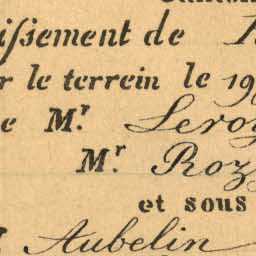 issement de
r le terrein le 19
e Mr. Leroy
Mr. Roz
et sous
Aubelin